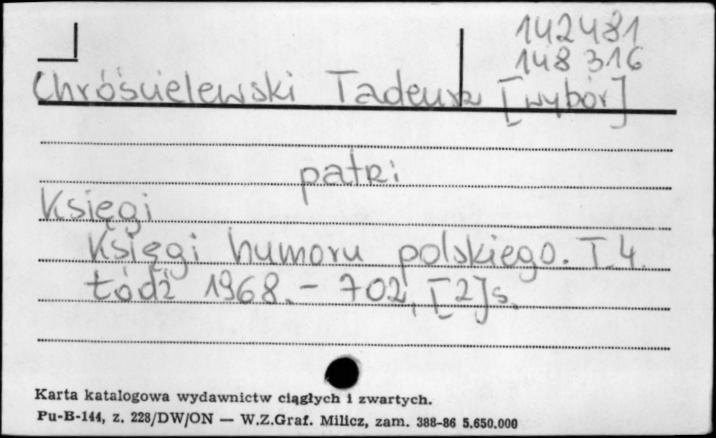 142481
148316
Chróścielewski Tadeusz [wybór]
patrz:
Księgi
Księgi humoru polskiego. T.4.
Łódź 1968. - 702, [2]s.
Karta katalogowa wydawnictw ciągłych i zwartych.
Pu-B-144, z. 228/DW/ON — W.Z.Graf. Milicz, zam. 388-86 5.650.000